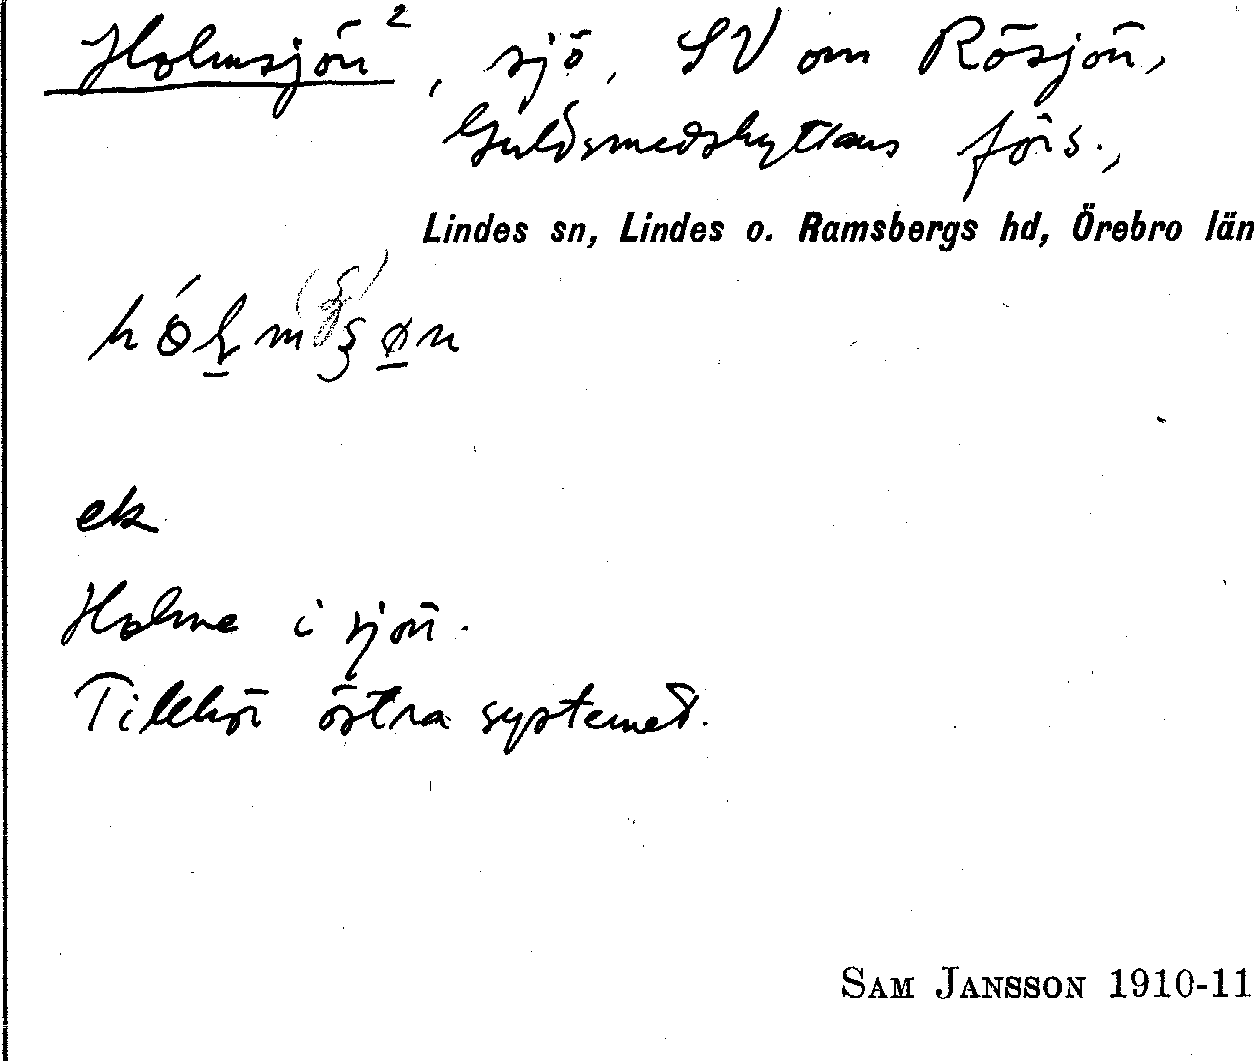 Holmsjön², sjö, SV om Rösjön,
Guldsmedshyttans förs.,
Lindes sn, Lindes o. Ramsbergs hd, Örebro län
ek
Holme i sjön.
Tillhör östra systemet.
SAM JANSSON 1910-11